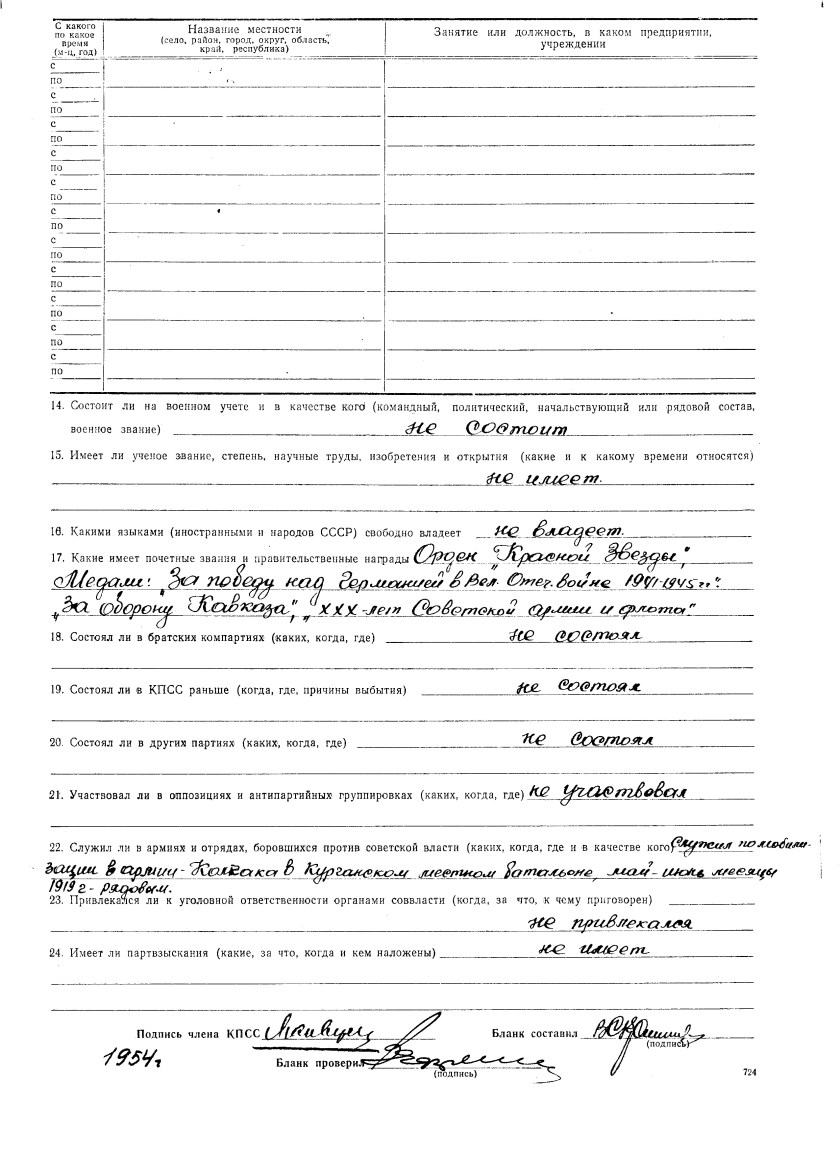 С какого по какое время (м-ц, год)
Название местности (село, район, город, округ, область, край, республика)
Занятие или должность, в каком предприятии, учреждении
с
по
с
по
с
по
с
по
с
по
с
по
с
по
с
по
с
по
с
по
с
по
14. Состоит ли на военном учете и в качестве кого (командный, политический, начальствующий или рядовой состав,
военное звание) не состоит
15. Имеет ли ученое звание, степень, научные труды, изобретения и открытия (какие и к какому времени относятся)
не имеет.
16. Какими языками (иностранными и народов СССР) свободно владеет не владеет.
17. Какие имеет почетные звания и правительственные награды Орден "Красной Звезды",
Медали: "За победу над Германией в Вел. Отеч. войне 1941-1945 гг".
"За Оборону Кавказа", "XXX-лет Советской армии и флота"
18. Состоял ли в братских компартиях (каких, когда, где) не состоял
19. Состоял ли в КПСС раньше (когда, где, причины выбытия) не состоял
20. Состоял ли в других партиях (каких, когда, где) не состоял
21. Участвовал ли в оппозициях и антипартийных группировках (каких, когда, где) не участвовал
22. Служил ли в армиях и отрядах, боровшихся против советской власти (каких, когда, где и в качестве кого) Служил по мобили-
зации в армии - Колчака в Курганском местном батальоне, май - июнь месяцы
1919 г - рядовым.
23. Привлекался ли к уголовной ответственности органами соввласти (когда, за что, к чему приговорен)
не привлекался
24. Имеет ли партвзыскания (какие, за что, когда и кем наложены) не имеет
Подпись члена КПСС
Бланк составил
(подпись)
1954 г
Бланк проверил
(подпись)
724